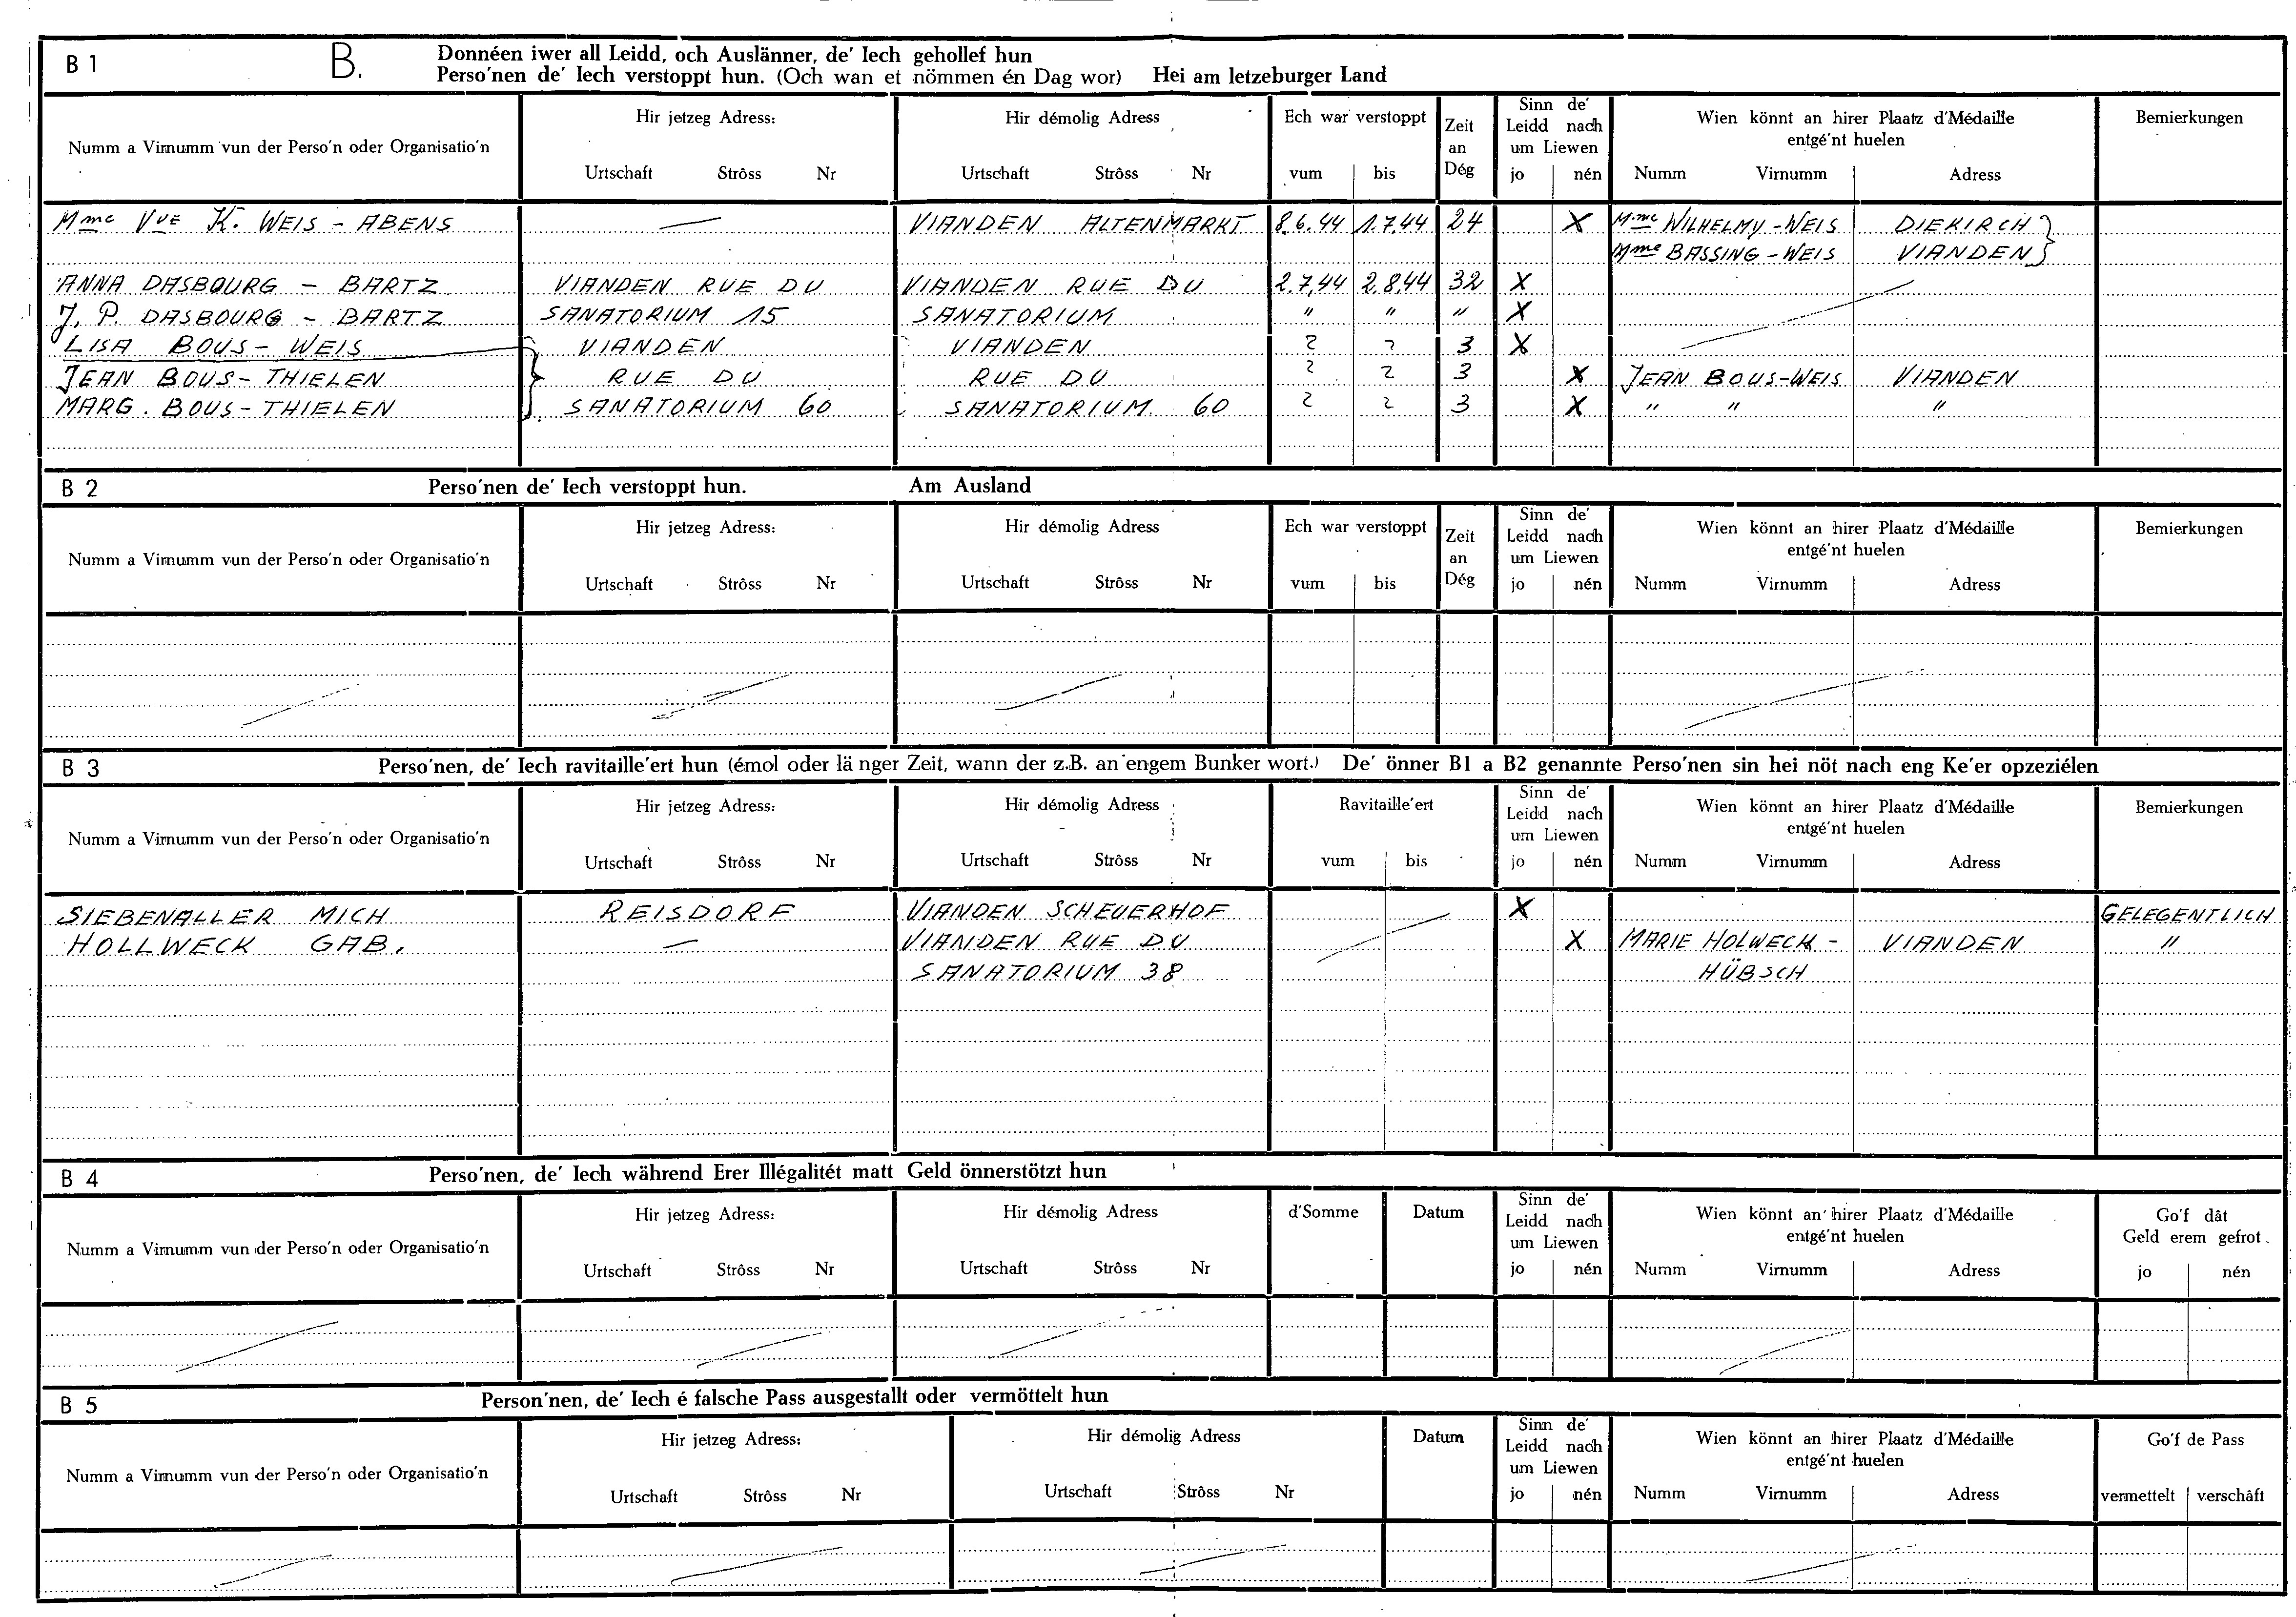 B 1 B. Donnéen iwer all Leidd, och Auslänner, de' Iech gehollef hun
Perso'nen de' Iech verstoppt hun. (Och wan et nömmen én Dag wor) Hei am letzeburger Land
Numm a Virnumm vun der Perso'n oder Organisatio'n
Hir jetzeg Adress:
Urtschaft Strôss Nr
Hir démolig Adress
Urtschaft Strôss Nr
Ech war verstoppt
vum bis
Zeit
an
Dég
Sinn de'
Leidd nach
um Liewen
jo nén
Wien könnt an hirer Plaatz d'Médaille
entgé'nt huelen
Numm Virnumm Adress
Bemierkungen
Mme Vve K. WEIS - ABENS — VIANDEN ALTENMARKT 8.6.44 1.7.44 24 X Mme WILHELMY - WEIS DIEKIRCH
Mme BASSING - WEIS VIANDEN
ANNA DASBOURG - BARTZ VIANDEN RUE DU VIANDEN RUE DU 2.7.44 2.8.44 32 X
J. P. DASBOURG - BARTZ SANATORIUM 15 SANATORIUM " " " X
LISA BOUS - WEIS VIANDEN VIANDEN ? ? 3 X
JEAN BOUS - THIELEN RUE DU RUE DU ? ? 3 X JEAN BOUS-WEIS VIANDEN
MARG. BOUS - THIELEN SANATORIUM 60 SANATORIUM 60 ? ? 3 X " " "
B 2 Perso'nen de' Iech verstoppt hun. Am Ausland
Numm a Virnumm vun der Perso'n oder Organisatio'n
Hir jetzeg Adress:
Urtschaft Strôss Nr
Hir démolig Adress
Urtschaft Strôss Nr
Ech war verstoppt
vum bis
Zeit
an
Dég
Sinn de'
Leidd nach
um Liewen
jo nén
Wien könnt an hirer Plaatz d'Médaille
entgé'nt huelen
Numm Virnumm Adress
Bemierkungen
B 3 Perso'nen, de' Iech ravitaille'ert hun (émol oder länger Zeit, wann der z.B. an engem Bunker wort.) De' önner B1 a B2 genannte Perso'nen sin hei nöt nach eng Ke'er opzeziélen
Numm a Virnumm vun der Perso'n oder Organisatio'n
Hir jetzeg Adress:
Urtschaft Strôss Nr
Hir démolig Adress
Urtschaft Strôss Nr
Ravitaille'ert
vum bis
Sinn de'
Leidd nach
um Liewen
jo nén
Wien könnt an hirer Plaatz d'Médaille
entgé'nt huelen
Numm Virnumm Adress
Bemierkungen
SIEBENALLER MICH REISDORF VIANDEN SCHEUERHOF X GELEGENTLICH
HOLLWECK GAB. — VIANDEN RUE DU X MARIE HOLWECK - VIANDEN "
SANATORIUM 38 HÜBSCH
B 4 Perso'nen, de' Iech während Erer Illégalitét matt Geld önnerstötzt hun
Numm a Virnumm vun der Perso'n oder Organisatio'n
Hir jetzeg Adress:
Urtschaft Strôss Nr
Hir démolig Adress
Urtschaft Strôss Nr
d'Somme Datum
Sinn de'
Leidd nach
um Liewen
jo nén
Wien könnt an hirer Plaatz d'Médaille
entgé'nt huelen
Numm Virnumm Adress
Go'f dât
Geld erem gefrot
jo nén
B 5 Person'nen, de' Iech é falsche Pass ausgestallt oder vermöttelt hun
Numm a Virnumm vun der Perso'n oder Organisatio'n
Hir jetzeg Adress:
Urtschaft Strôss Nr
Hir démolig Adress
Urtschaft Strôss Nr
Datum
Sinn de'
Leidd nach
um Liewen
jo nén
Wien könnt an hirer Plaatz d'Médaille
entgé'nt huelen
Numm Virnumm Adress
Go'f de Pass
vermettelt verschâft